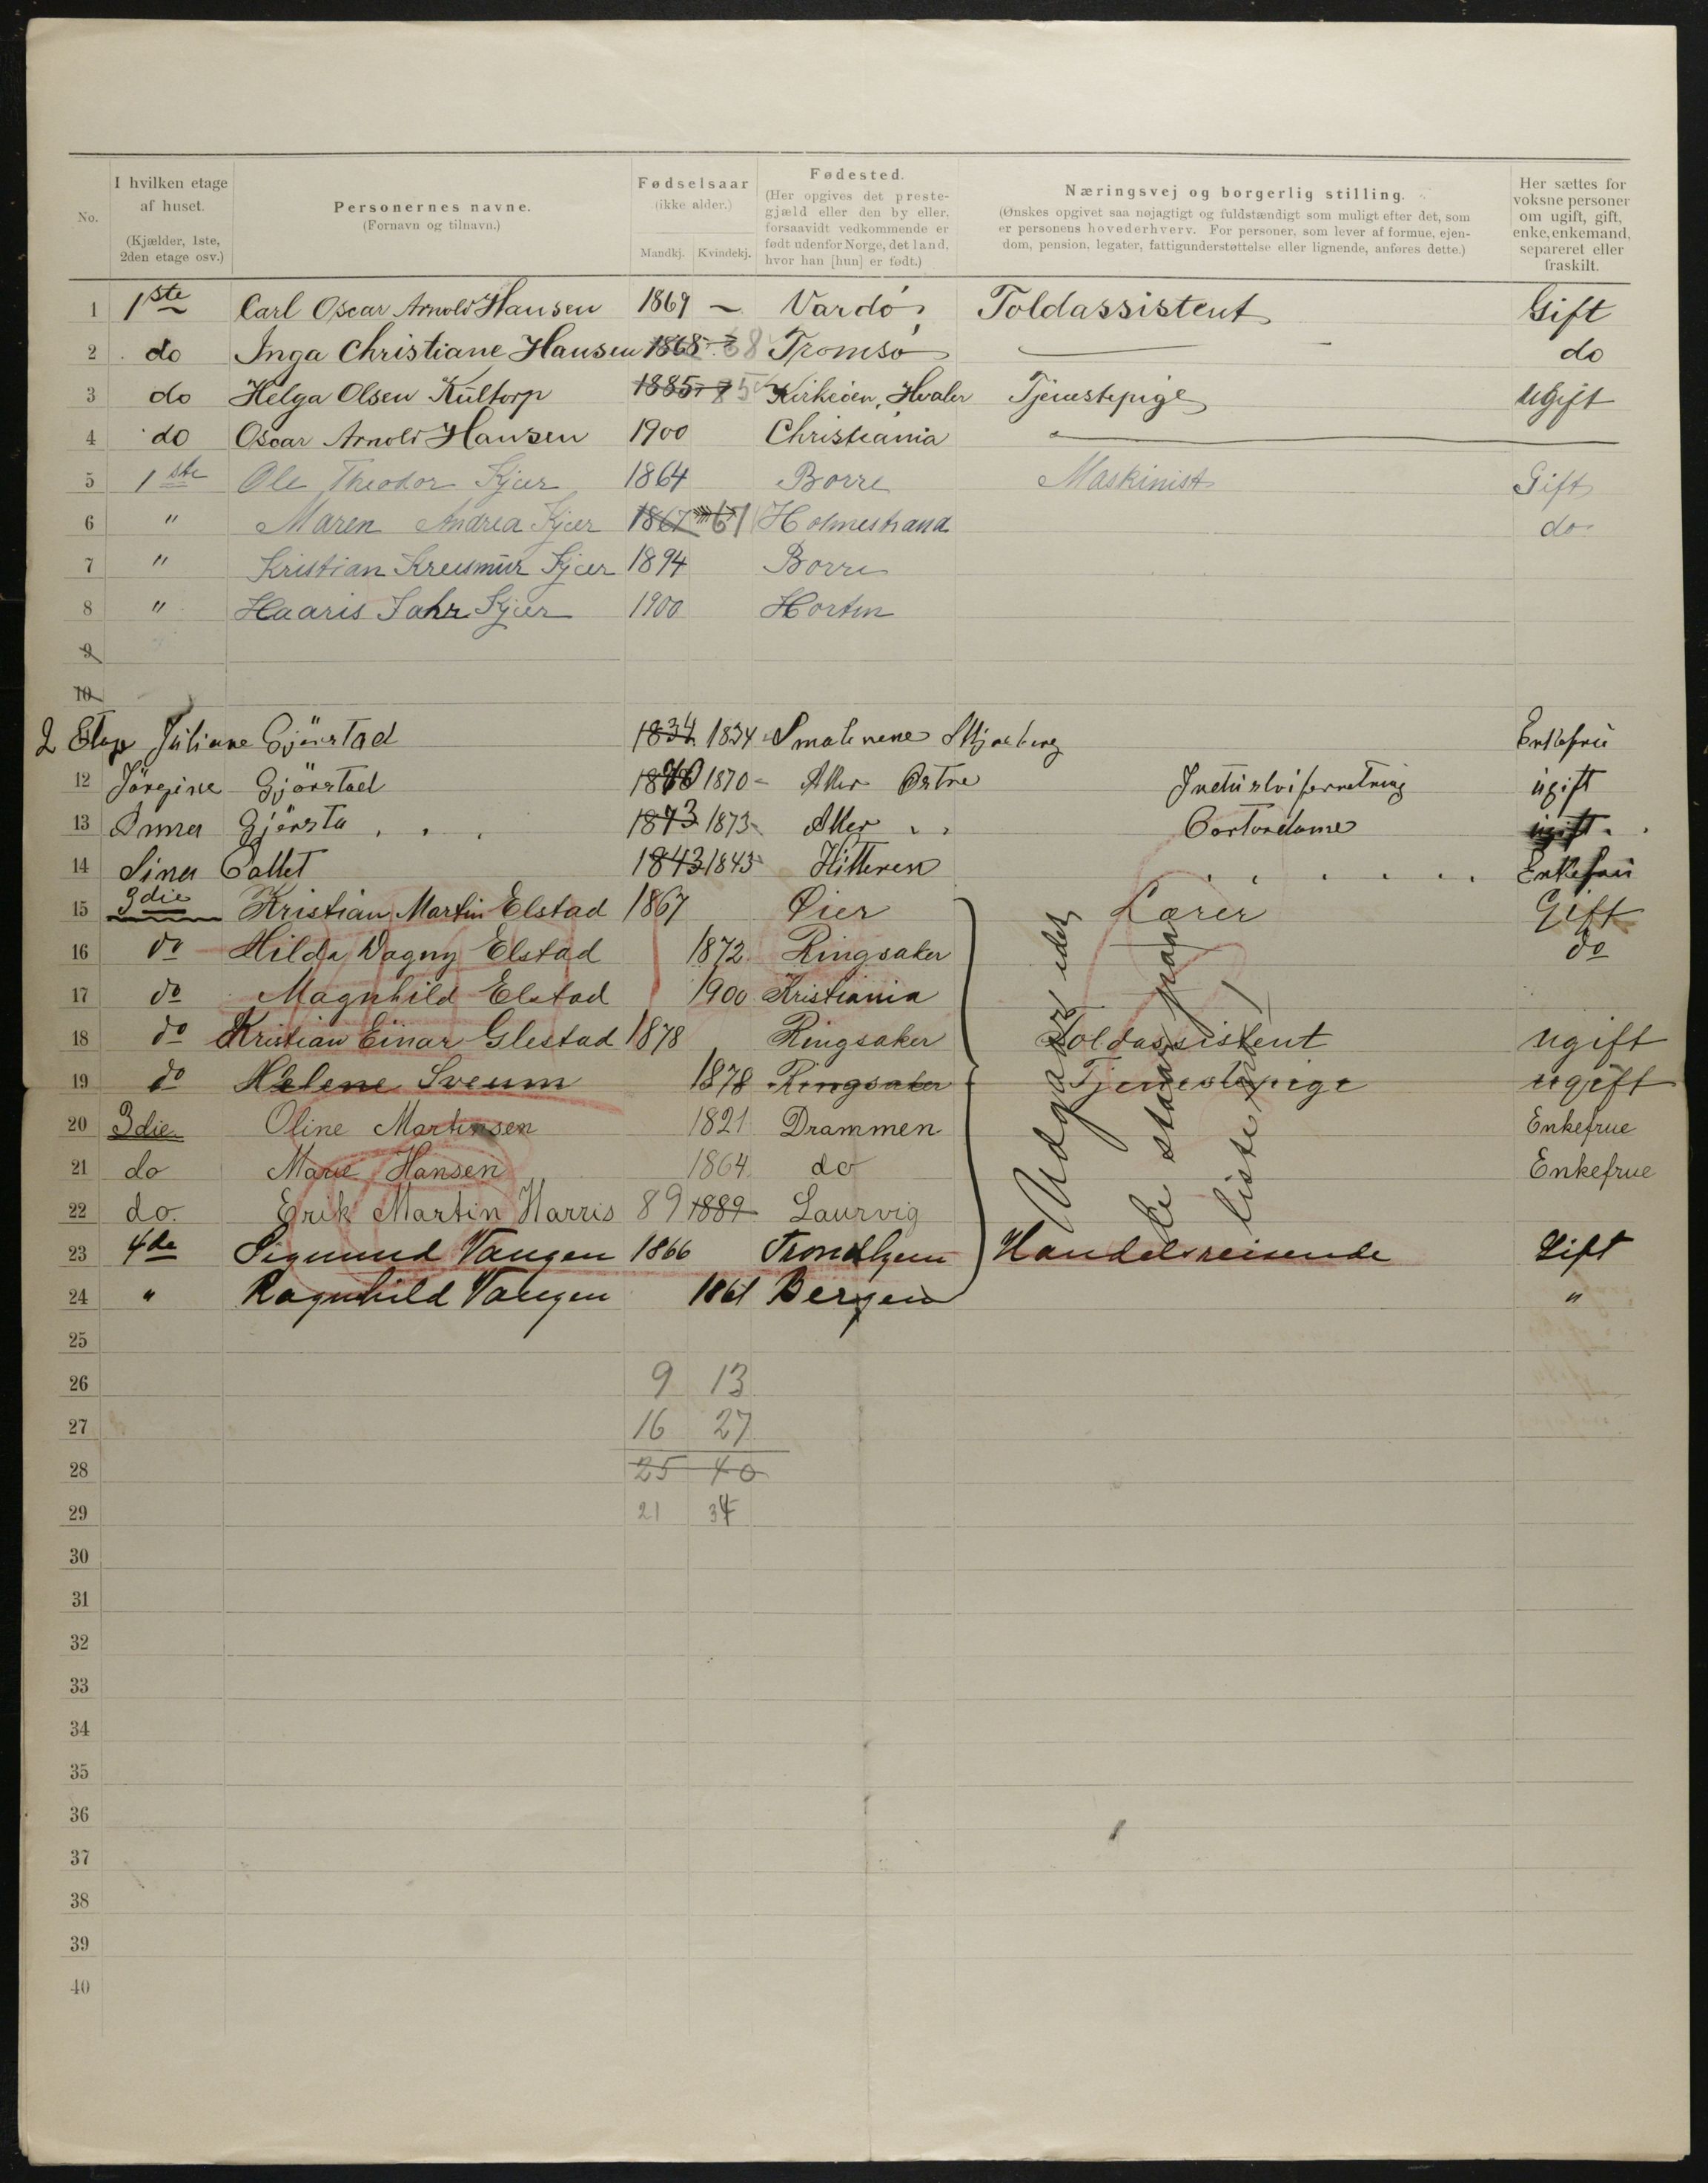 No.
I hvilken etage af huset.
(Kjælder, 1ste, 2den etage osv.)
Personernes navne.
(Fornavn og tilnavn.)
Fødselsaar
(ikke alder.)
Mandkj. Kvindekj.
Fødested.
(Her opgives det prestegjæld eller den by eller, forsaavidt vedkommende er født udenfor Norge, det land, hvor han [hun] er født.)
Næringsvej og borgerlig stilling.
(Ønskes opgivet saa nøjagtigt og fuldstændigt som muligt efter det, som er personens hovederhverv. For personer, som lever af formue, ejendom, pension, legater, fattigunderstøttelse eller lignende, anføres dette.)
Her sættes for voksne personer om ugift, gift, enke, enkemand, separeret eller fraskilt.
1 1ste Carl Oscar Arnold Hansen 1869 – Vardö Toldassistent Gift
2 do Inga Christiane Hansen 1868 68 Tromsö — do
3 do Helga Olsen Kultorp 1885 85 Kirkeöen, Hvaler Tjenestepige Ugift
4 do Oscar Arnold Hansen 1900 Christiania
5 1ste Ole Theodor Kjær 1864 Borre Maskinist Gift
6 " Maren Andrea Kjær 1867 67 Holmestrand do
7 " Kristian Kjær 1894 Borre
8 " Haaris Kjær 1900 Horten
9
10
2 Etage Juliane Gjörstad 1834 1834 Smalenene Skjeberg Enkefrü
12 Jörgine Gjörstad 1870 1870 – Aker Östre ügift
13 Anna Gjörsta " " 1873 1873 – Aker " " Contordame ügift
14 Sina 1843 1843 Hitteren Enkefrü
15 3die Kristian Martin Elstad 1867 Öier Lærer Gift
16 do Hilda Dagny Elstad 1872 Ringsaker do
17 do Magnhild Elstad 1900 Kristiania
18 do Kristian Einar Glestad 1878 Ringsaker Toldassistent ugift
19 do Helene Sveum 1878 Ringsaker Tjenestepige ugift
20 3die Oline Martinsen 1821 Drammen Enkefrue
21 do Marie Hansen 1864 do Enkefrue
22 do. Erik Martin Harris 89 1889 Laurvig
23 4de Sigmund Vangen 1866 Trondhjem Handelsreisende Gift
24 " Ragnhild Vangen 1861 Bergen "
Udgaar, idet
de staar paa
liste
25
26 9 13
27 16 27
28 25 40
29 21 34
30
31
32
33
34
35
36
37
38
39
40